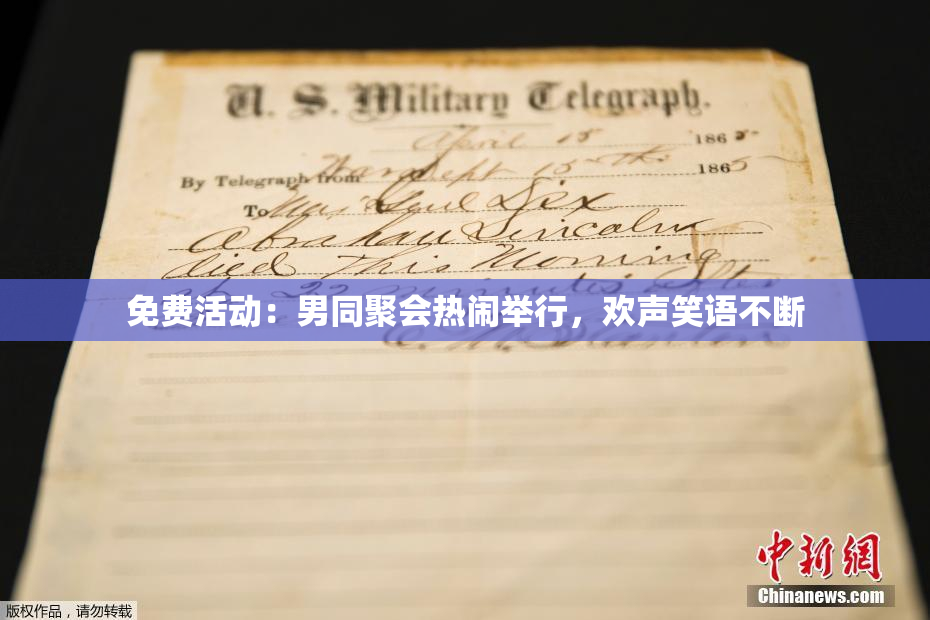 U. S. Military Telegraph.
April 15 1865
By Telegraph from War Dept 15th 1865
To Maj Genl Dix
Abraham Lincoln
died This Morning
at 22 minutes after
免费活动：男同聚会热闹举行，欢声笑语不断
E. M. Stanton
中新网
Chinanews.com
版权作品，请勿转载